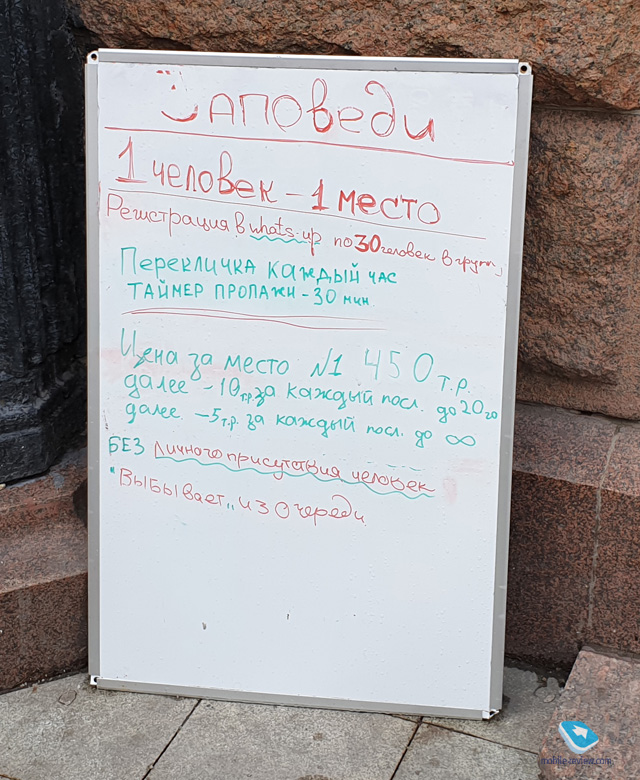 Заповеди
1 человек - 1 место
Регистрация в whats-up по 30 человек в группу
Перекличка каждый час
ТАЙМЕР ПРОПАЖИ - 30 мин.
Цена за место №1 450 т.р.
далее -10 т.р. за каждый посл. до 20го
далее -5 т.р. за каждый посл. до ∞
БЕЗ личного присутствия человек
"Выбывает" из очереди
mobile-review.com